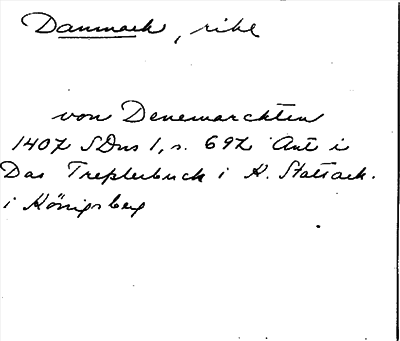 Danmark, rike
von Denemarckten
1407 SDns 1, s. 697 Ant i
Das Tresslerbuch i K. Statsark.
i Königsberg